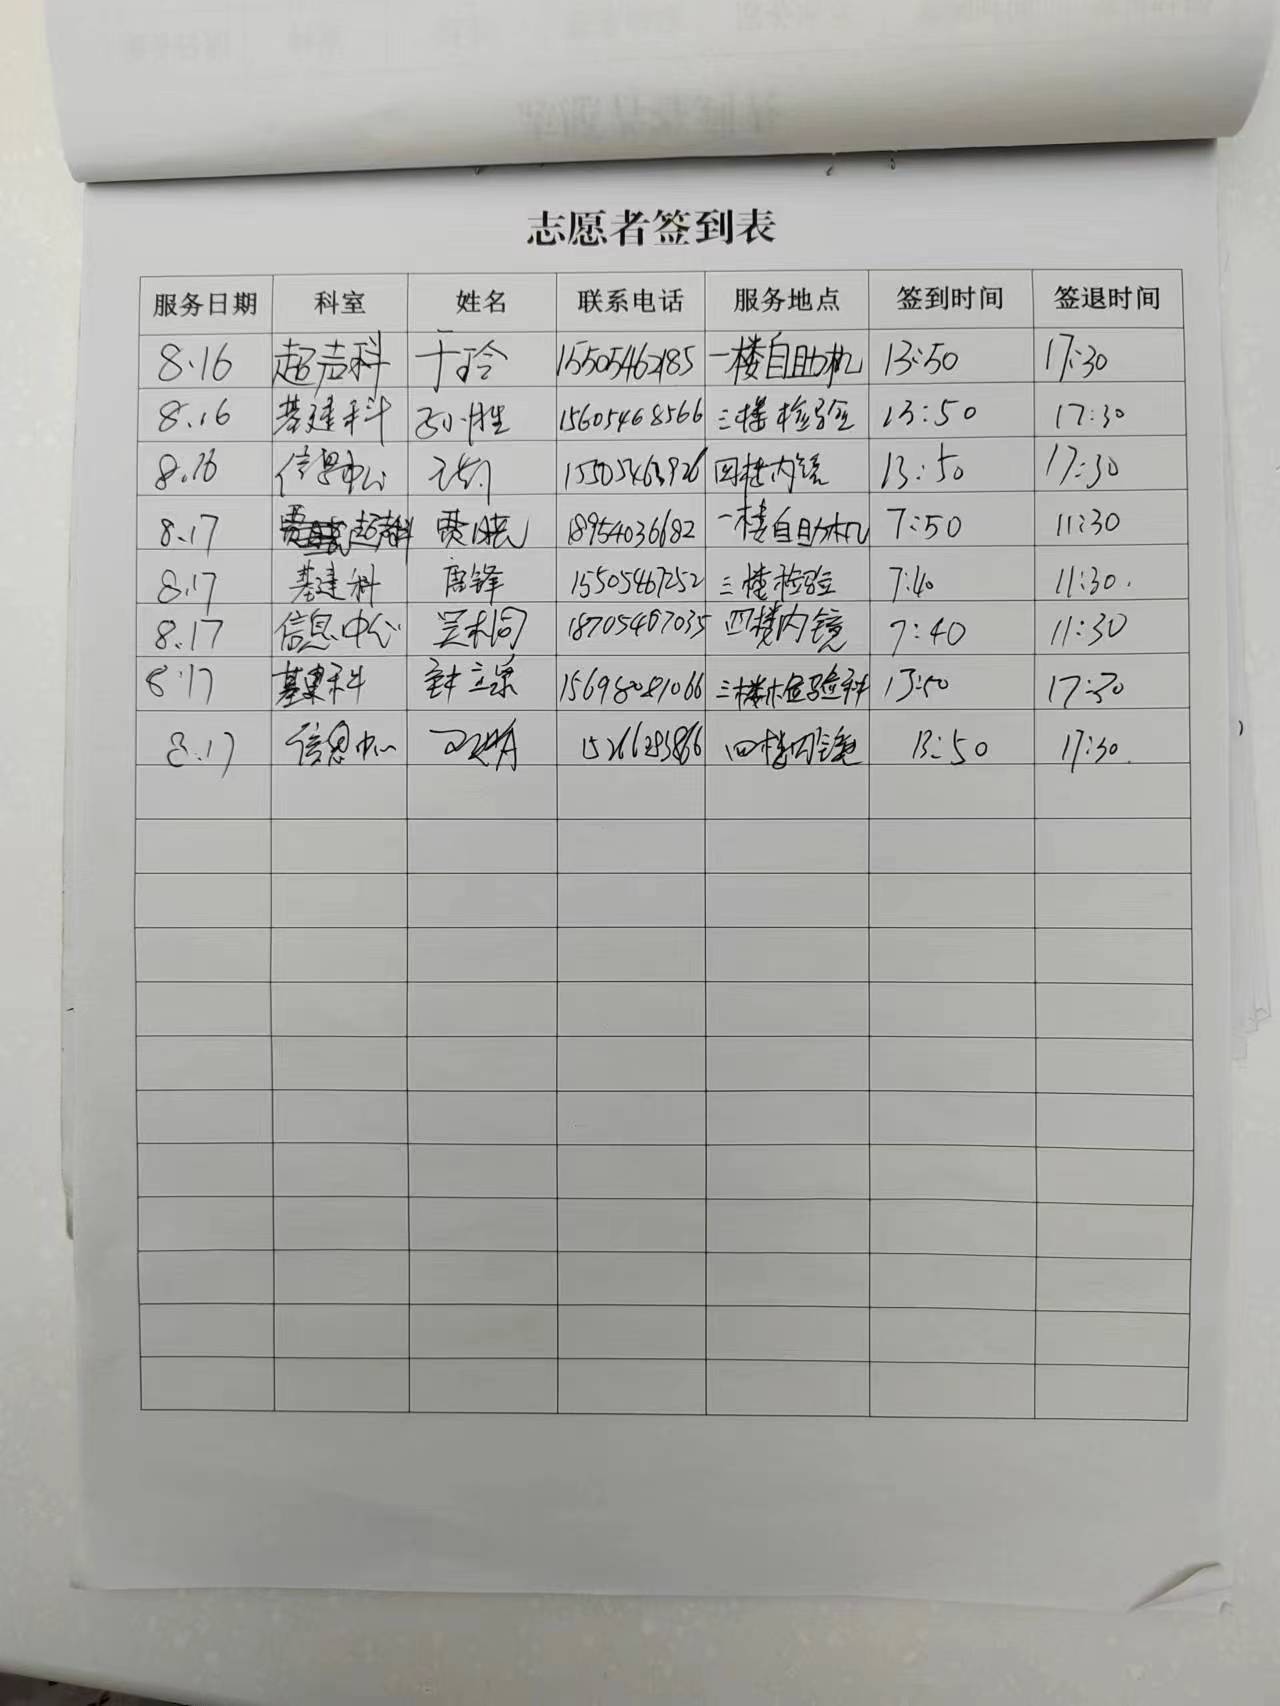 志愿者签到表
服务日期 科室 姓名 联系电话 服务地点 签到时间 签退时间
8.16 超声科 于玲 15505462185 一楼自助机 13:50 17:30
8.16 基建科 15605468566 三楼检验 13:50 17:30
8.16 信息中心 四楼内镜 13:50 17:30
8.17 超声科 贾晓 18954036682 一楼自助机 7:50 11:30
8.17 基建科 唐锋 15505467252 三楼检验 7:40 11:30.
8.17 信息中心 18705467035 四楼内镜 7:40 11:30
8.17 基建科 三楼检验科 13:50 17:30
8.17 信息中心 四楼内镜 13:50 17:30.